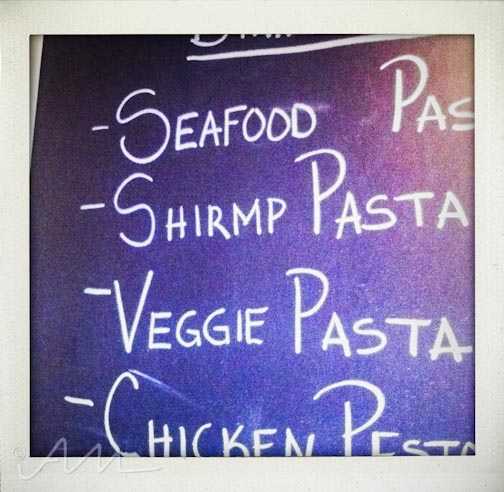 - SEAFOOD PAS
- SHIRMP PASTA
- VEGGIE PASTA
- CHICKEN PESTO